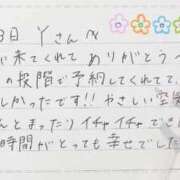 3日 Yさん
が来てくれて ありがとう
の段階で予約してくれてて、
しかったです!! やさしい空
んとまったりイチャイチャでき
時間がとっても幸せでした